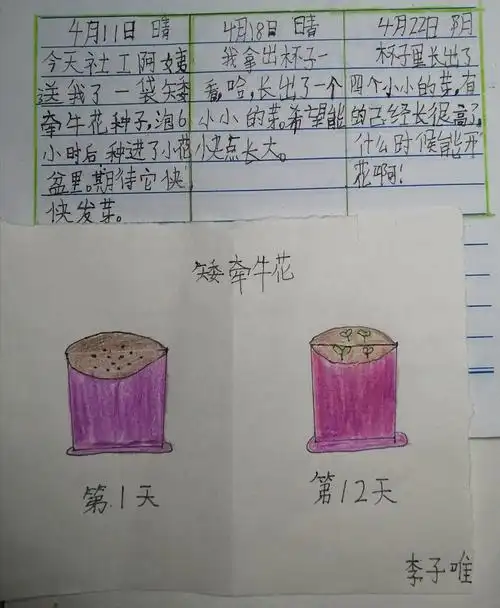 4月11日 晴
今天社工阿姨
送我了一袋矮
牵牛花种子,泡6
小时后种进了小花
盆里。期待它快
快发芽。
4月18日 晴
我拿出杯子一
看,哈,长出了一个
小小的芽。希望能
快点长大。
4月22日 阴
杯子里长出了
四个小小的芽,有
的已经长很高了,
什么时候能开
花啊!
矮牵牛花
第1天
第12天
李子唯